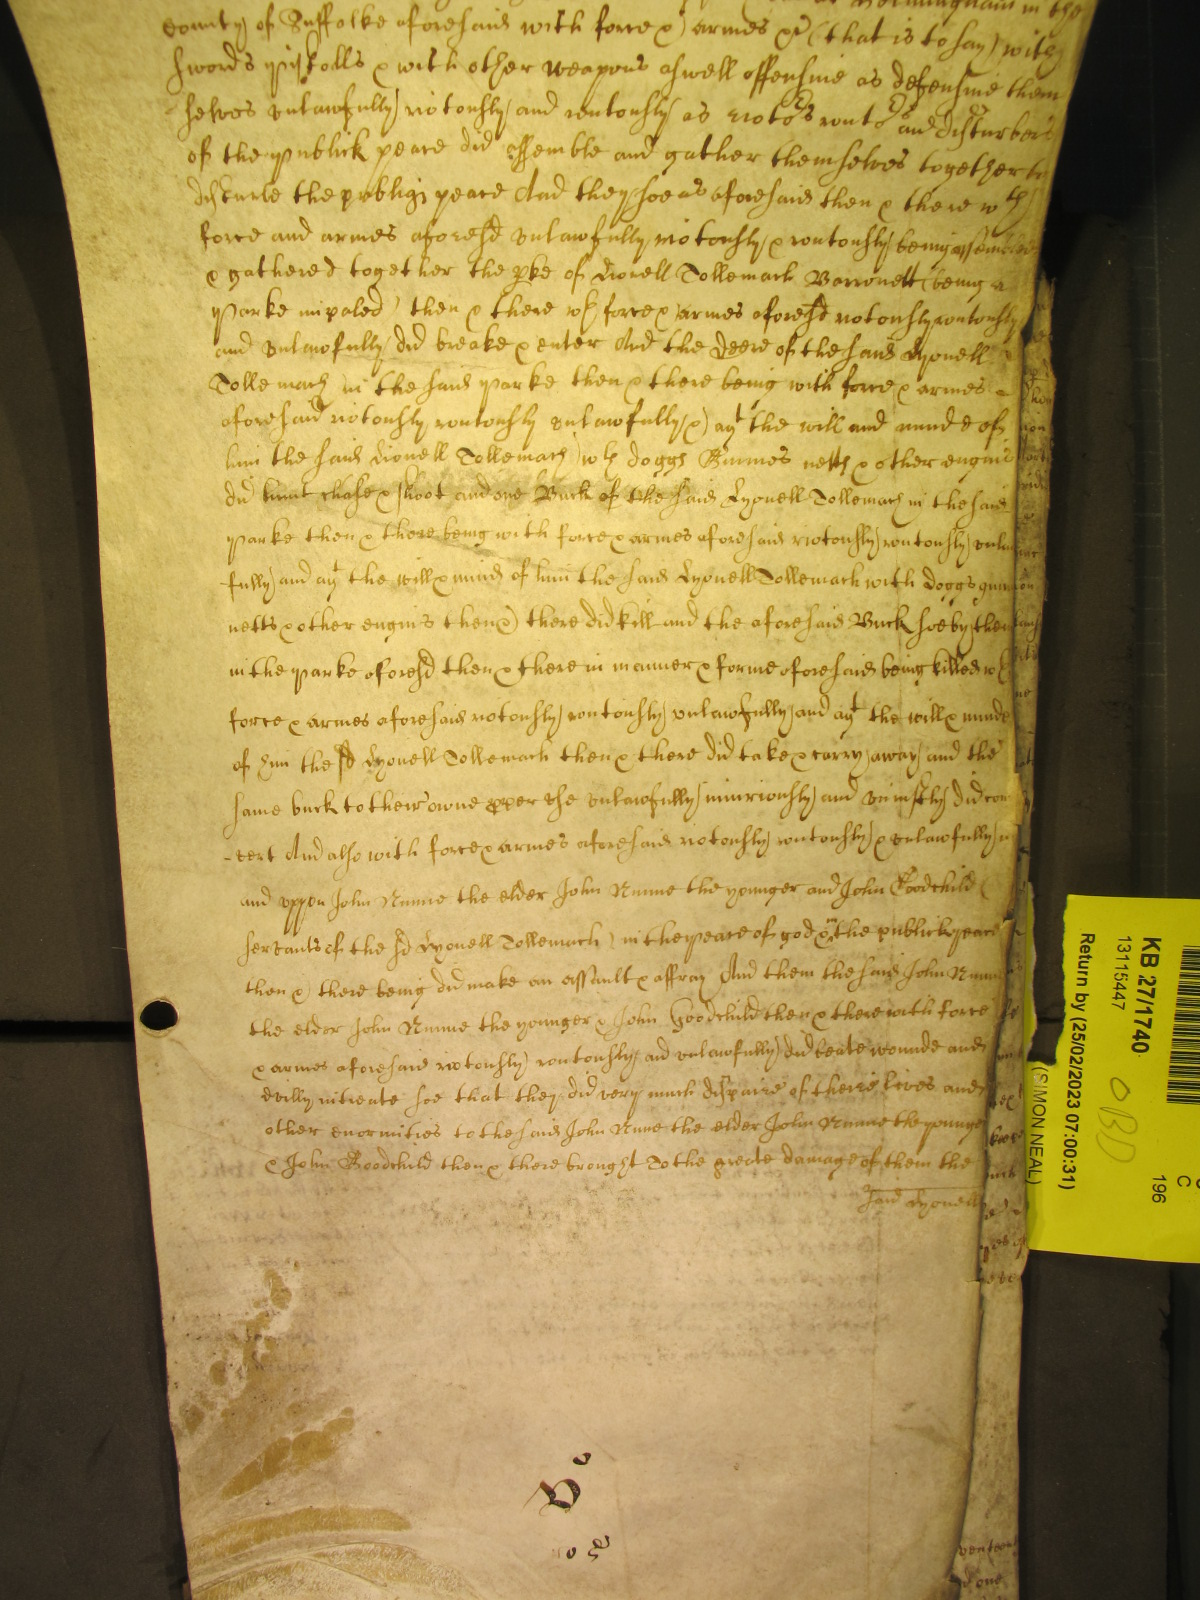 Helmingham in the
county of Suffolke aforesaid with force & armes &c (that is to say) with
swords pistolls & with other weapons aswell offensive as defensive them
selves unlawfully riotously and routously as riot͛s rout͛s and disturbers
of the publick peace did assemble and gather themselves together to
disturbe the publiq peace And they soe as aforesaid then & there wth
force and armes aforesd unlawfully riotously & routously being assembled
& gathered together the pke of Lionell Tollemach Barronett (being a
parke impaled) then & there wth force & armes aforesd riotously routously
and unlawfully did breake & enter And the deere of the said Lyonell
Tollemach in the said parke then & there being with force & armes
aforesaid riotously routously unlawfully & agt the will and minde of
him the said Lionell Tollemach wth doggs Gunnes netts & other engins
did hunt chase & shoot and one Buck of the said Lyonell Tollemach in the said
parke then & there being with force & armes aforesaid riotously routously unlaw
fully and agt the will & minde of him the said Lyonell Tollemach with doggs gunns
netts & other engins then & there did kill and the aforesaid Buck soe by them
in the parke aforesd then & there in manner & forme aforesaid being killed wth
force & armes aforesaid riotously routously unlawfully and agt the will & minde
of him the sd Lyonell Tollemach then & there did take & carry away and the
same buck to their owne pper use unlawfully iniuriously and uniustly did con
-vert And also with force & armes aforesaid riotously routously & unlawfully in
and uppon John Nunne the elder John Nunne the younger and John Goodchild (
servants of the sd Lyonell Tollemach) in the peace of god & the publick peace
then & there being did make an assault & affray And them the said John Nunne
the elder John Nunne the younger & John Goodchild then & there with force
& armes aforesaid riotously routously and unlawfully did beate wounde and
evilly intreate soe that they did very much dispaire of theire lives and
other enormities to the said John Nunne the elder John Nunne the younger
& John Goodchild then & there brought To the greate damage of them the
said Lyonell
KB 27/1740
13115447
Return by (25/02/2023 07:00:31)
(SIMON NEAL)
OBD
196
C